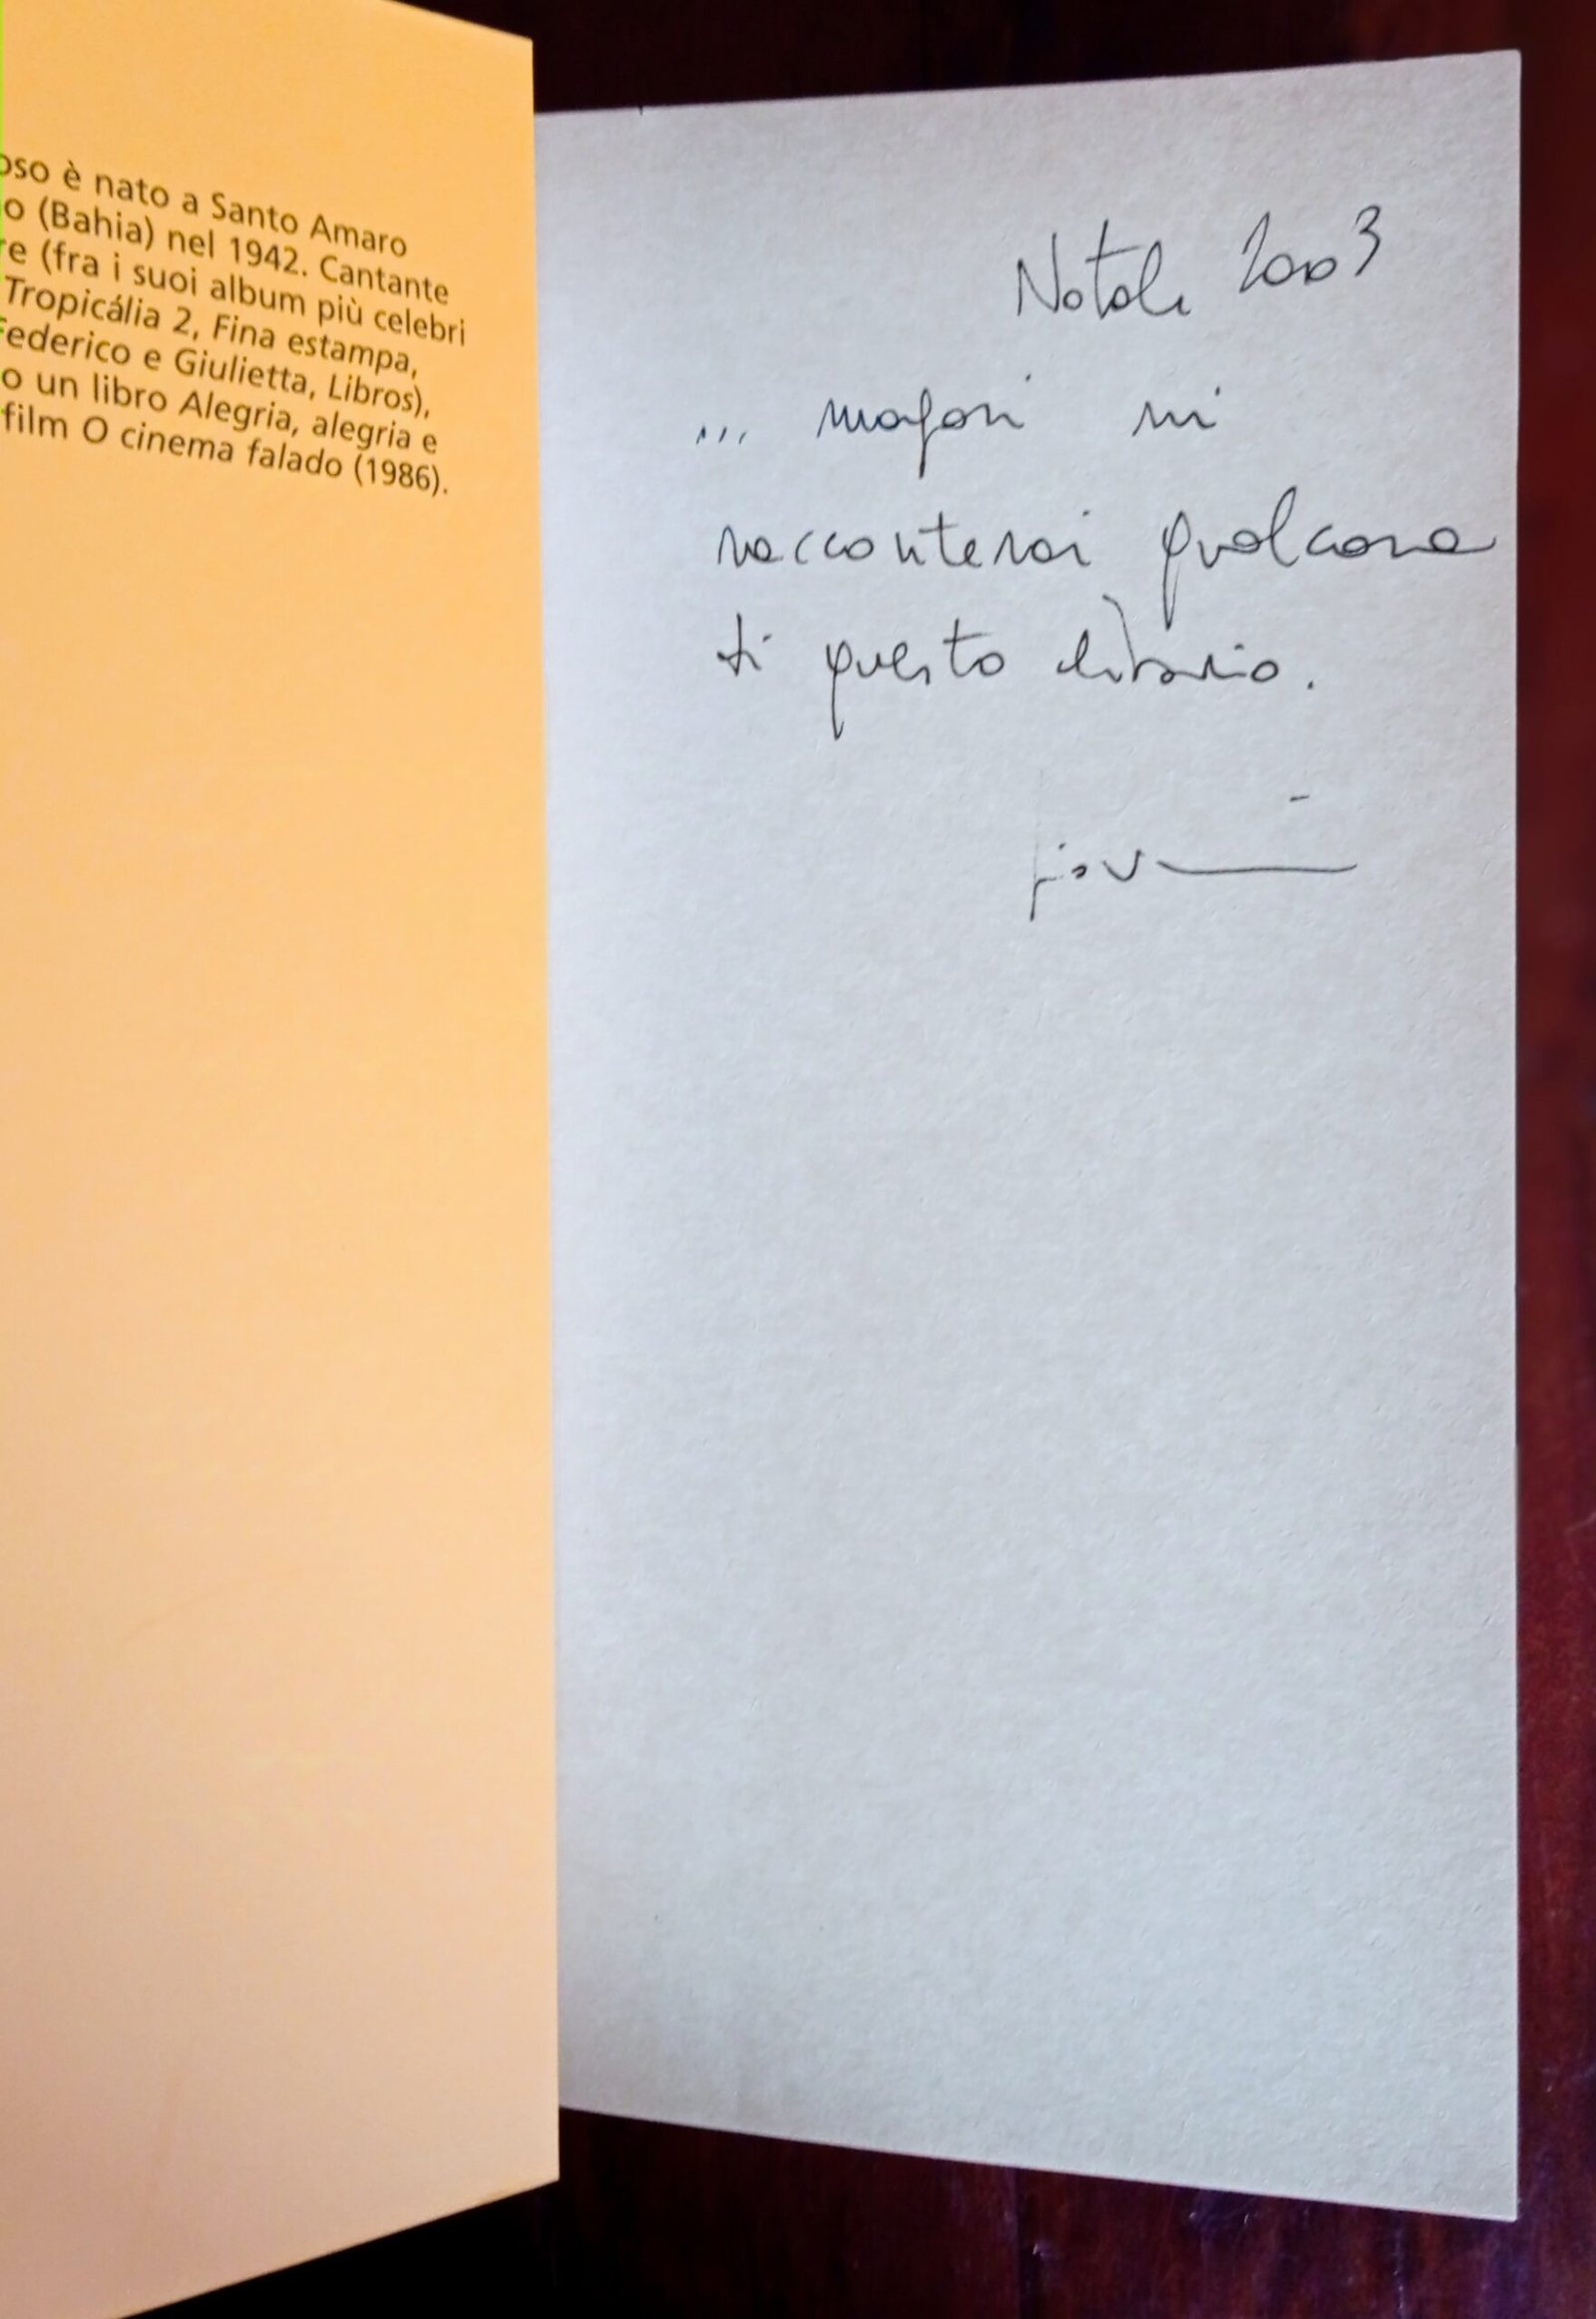 oso è nato a Santo Amaro
o (Bahia) nel 1942. Cantante
re (fra i suoi album più celebri
Tropicália 2, Fina estampa,
Federico e Giulietta, Libros),
o un libro Alegria, alegria e
film O cinema falado (1986).
Natale 2003
... magari mi
racconterai qualcosa
di questo